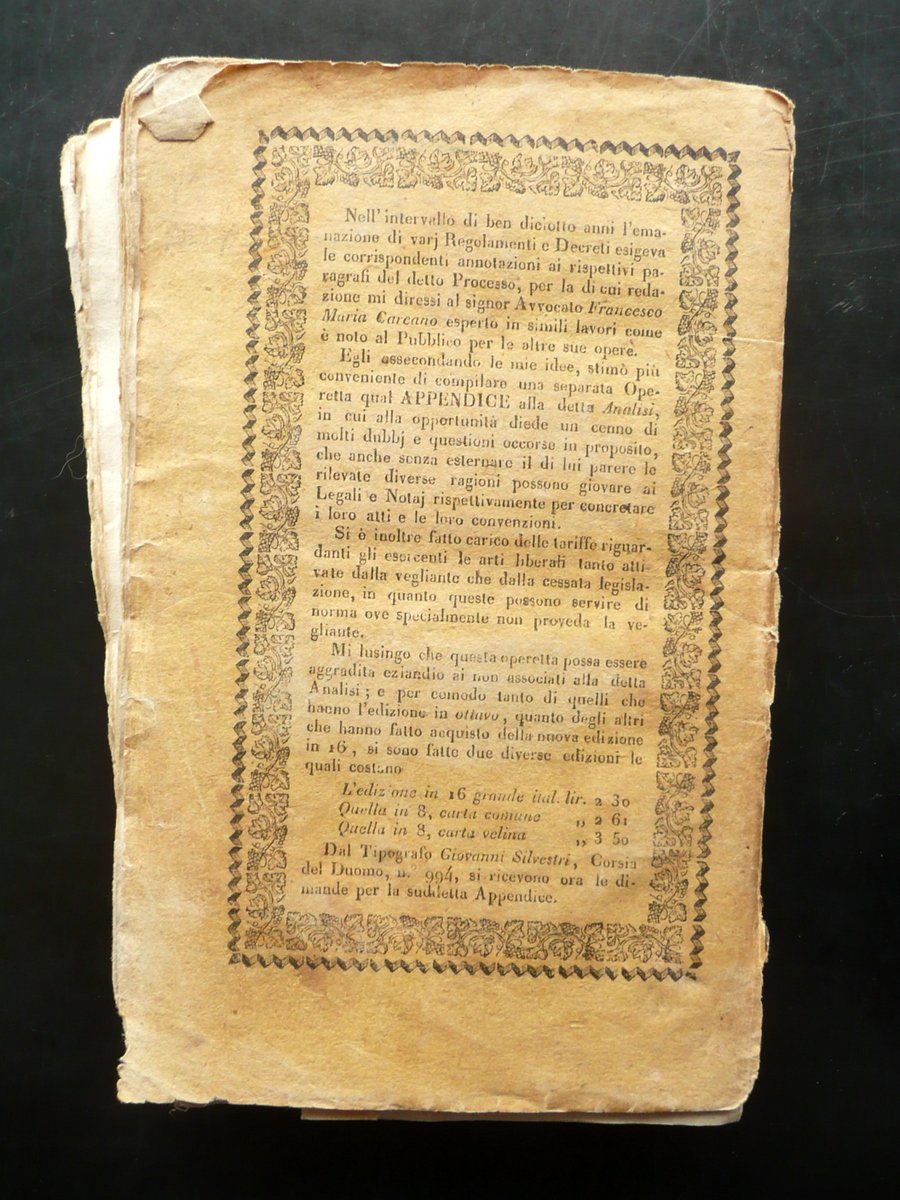 Nell' intervallo di ben diciotto anni l'ema-
nazione di varj Regolamenti e Decreti esigeva
le corrispondenti annotazioni ai rispettivi pa-
ragrafi del detto Processo, per la di cui reda-
zione mi diressi al signor Avvocato Francesco
Maria Carcano esperto in simili lavori come
è noto al Pubblico per le altre sue opere.
Egli assecondando le mie idee, stimò più
conveniente di compilare una separata Ope-
retta qual APPENDICE alla detta Analisi,
in cui alla opportunità diede un cenno di
molti dubbj e questioni occorse in proposito,
che anche senza esternare il di lui parere le
rilevate diverse ragioni possono giovare ai
Legali e Notaj rispettivamente per concretare
i loro atti e le loro convenzioni.
Si è inoltre fatto carico delle tariffe riguar-
danti gli esercenti le arti liberali tanto atti-
vate dalla vegliante che dalla cessata legisla-
zione, in quanto queste possono servire di
norma ove specialmente non proveda la ve-
gliante.
Mi lusingo che questa operetta possa essere
aggradita eziandio ai non associati alla detta
Analisi; e per comodo tanto di quelli che
hanno l'edizione in ottavo, quanto degli altri
che hanno fatto acquisto della nuova edizione
in 16, si sono fatte due diverse edizioni le
quali costano
L'edizione in 16 grande ital. lir. 2 30
Quella in 8, carta comune „ 2 61
Quella in 8, carta velina „ 3 50
Dal Tipografo Giovanni Silvestri, Corsia
del Duomo, n.° 994, si ricevono ora le di-
mande per la suddetta Appendice.